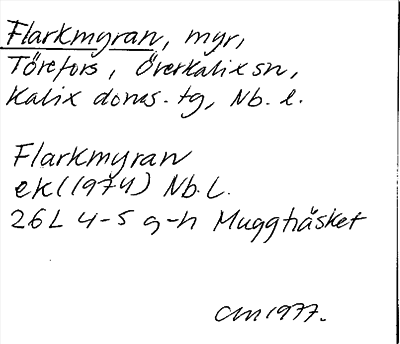 Flarkmyran, myr,
Törefors, Överkalix sn,
Kalix doms. tg, Nb. l.
Flarkmyran
ek (1974) Nb. L.
26L 4-5 g-h Muggträsket
CM 1977.